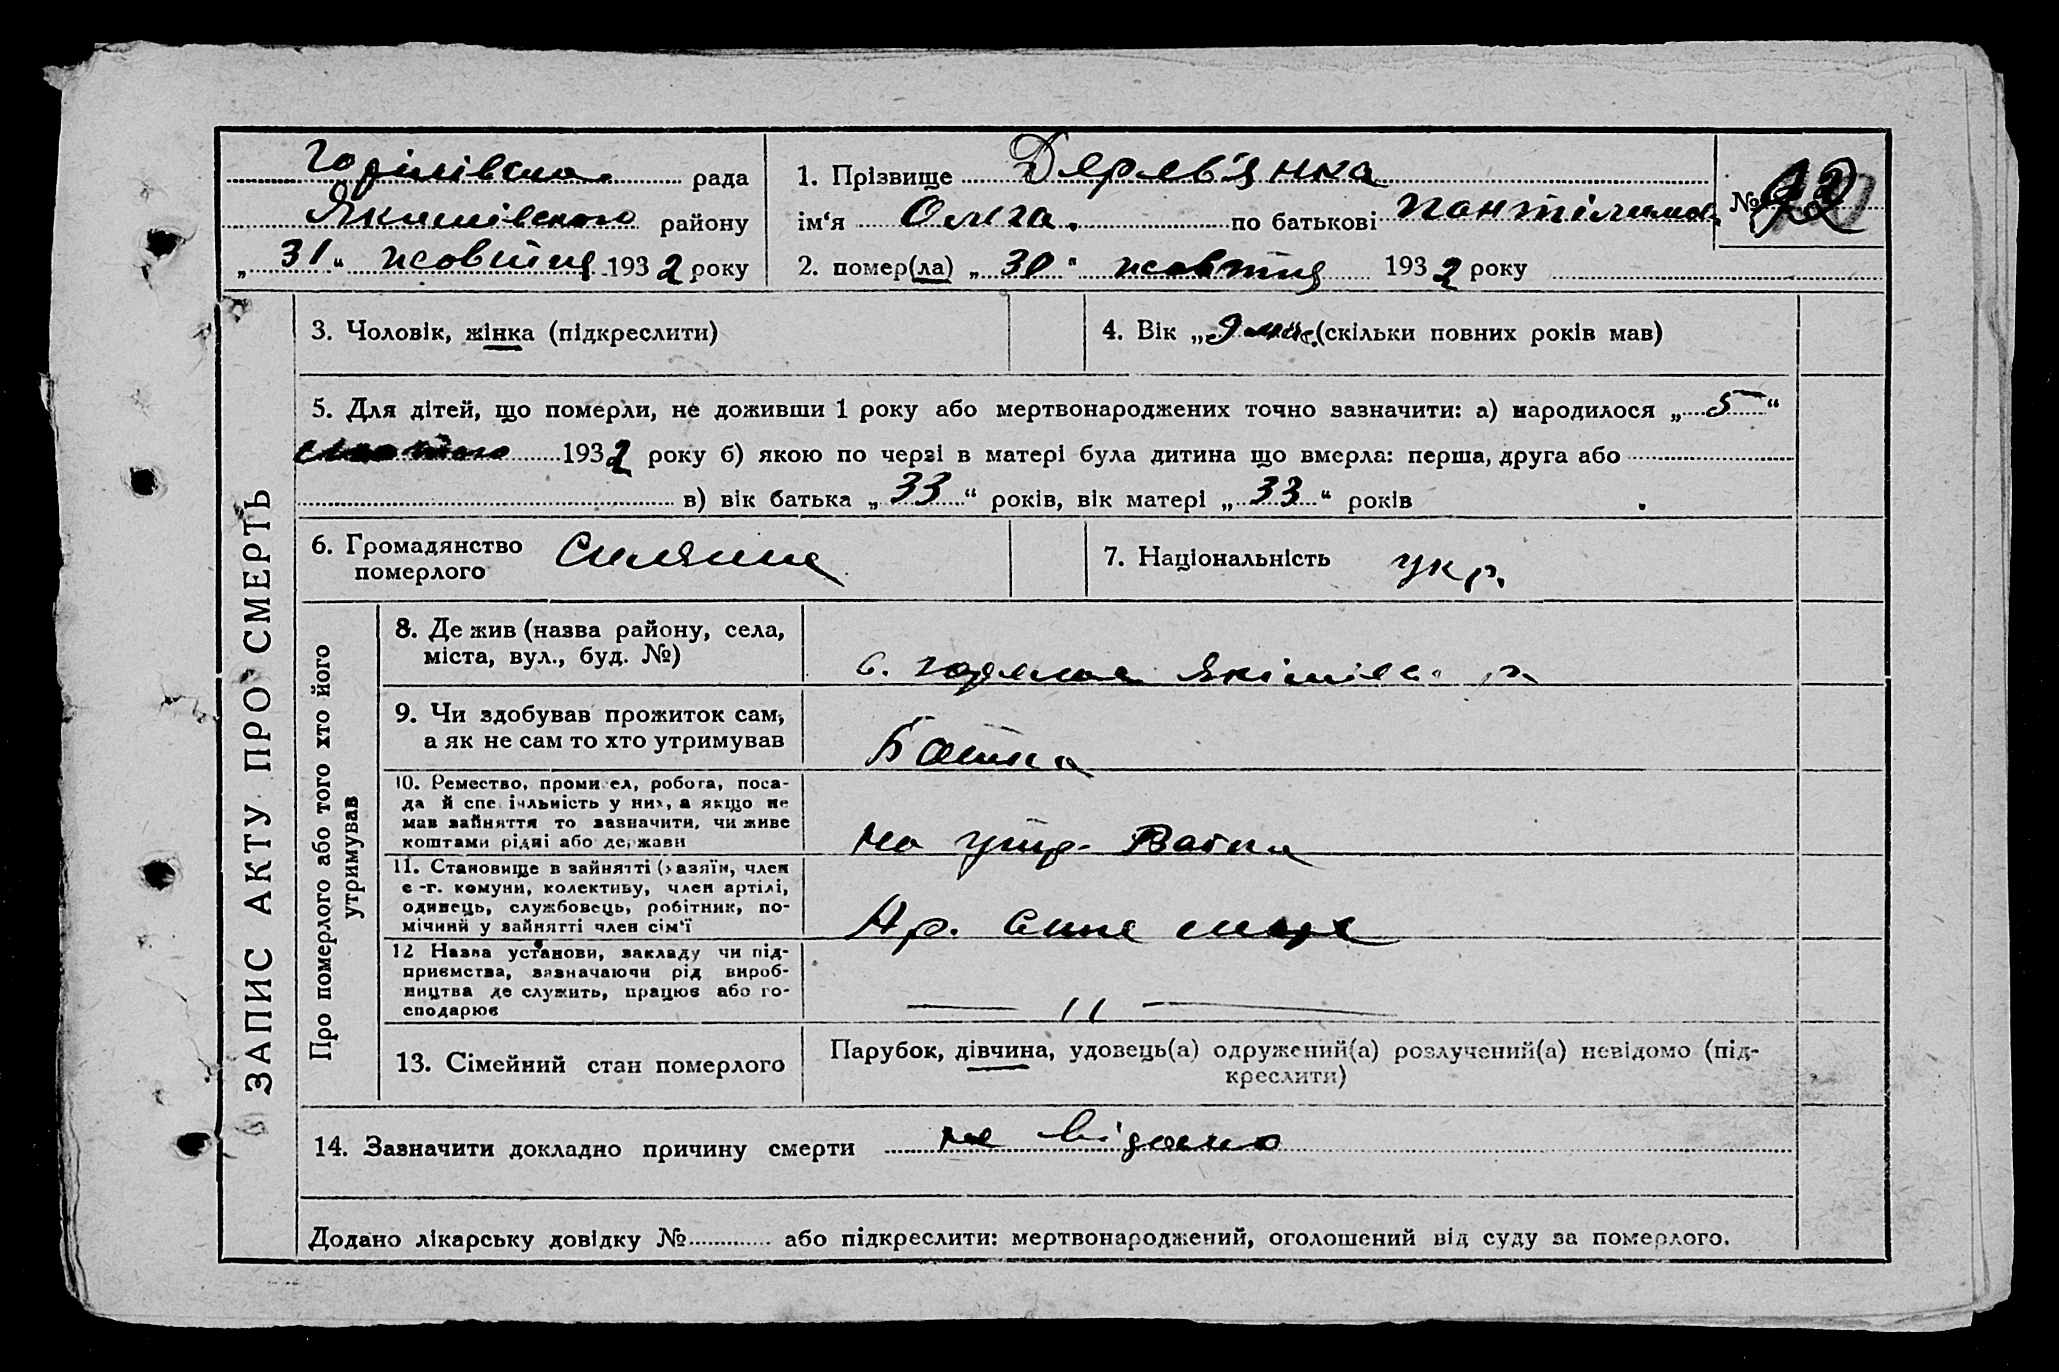 рада
району
„31“ жовтня 1932 року
1. Прізвище Дерев'янка
ім‘я Ольга. по батькові
2. помер(ла) „30“ жовтня 1932 року
№
ЗАПИС АКТУ ПРО СМЕРТЬ
3. Чоловік, жінка (підкреслити)
4. Вік „9 (скільки повних років мав)
5. Для дітей, що померли, не доживши 1 року або мертвонароджених точно зазначити: а) народилося „5“
1932 року б) якою по черзі в матері була дитина що вмерла: перша, друга або
в) вік батька „33“ років, вік матері „33“ років
6. Громадянство
померлого
7. Національність укр.
Про померлого або того хто його
утримував
8. Де жив (назва району, села,
міста, вул., буд. №)
с. р.
9. Чи здобував прожиток сам,
а як не сам то хто утримував
Батька
10. Ремество, промисел, робота, поса-
да й спеціяльність у них, а якщо не
мав зайняття то зазначити, чи живе
коштами рідні або держави
на утр. Батька
11. Становище в зайнятті (хазяїн, член
с-г. комуни, колективу, член артілі,
одинець, службовець, робітник, по-
мічний у зайнятті член сім‘ї
12 Назва установи, закладу чи під-
приємства, зазначаючи рід вироб-
ництва де служить, працює або го-
сподарює
— 11 —
13. Сімейний стан померлого
Парубок, дівчина, удовець(а) одружений(а) розлучений(а) невідомо (під-
креслити)
14. Зазначити докладно причину смерти не відомо
Додано лікарську довідку № або підкреслити: мертвонароджений, оголошений від суду за померлого.